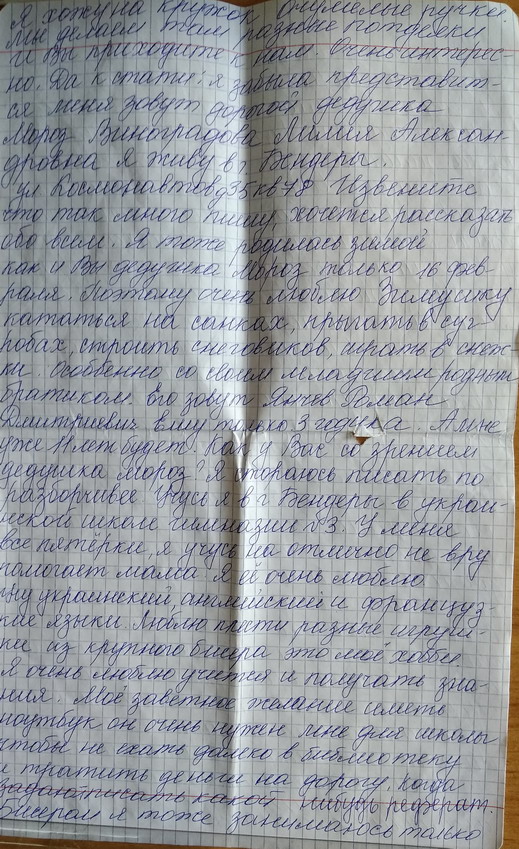 Я хожу на кружок очумелые ручки
Мы делаем там разные поделки
и Вы приходите к нам Очень интерес-
но. Да к стати: я забыла представит-
ся меня зовут дорогой дедушка
Мороз Виноградова Лилия Алексан-
дровна Я живу в г. Бендеры.
ул Космонавтов д35 кв78 Извените
что так много пишу, хочется рассказать
обо всем. Я тоже родилась зимой
как и Вы дедушка Мороз только 16 фев-
раля. Поэтому очень люблю Зимушку
кататься на санках, прыгать в суг
робах, строить снеговиков, играть в снеж
ки. Особенно со своим младшим родным
братиком. Его зовут Янчев Роман
Дмитриевич Ему только 3 годика. А мне
уже 11 лет будет. Как у Вас со зрением
дедушка Мороз? Я стораюсь писать по
разборчивее Учусь я в г. Бендеры в украи-
нской школе гимназии №3. У меня
все пятёрки, я учусь на отлично не вру
помогает мама. Я её очень люблю
учу украинский, английский и француз-
кие языки. Люблю плести разные игруш-
ки из крупного бисера это моё хобби.
Я очень люблю учится и получать зна-
ния. Моё заветное желание иметь
ноутбук он очень нужен мне для школы
чтобы не ехать далеко в библиотеку
и тратить деньги на дорогу, когда
писать какой нибудь реферат.
Бисером я тоже занимаюсь только